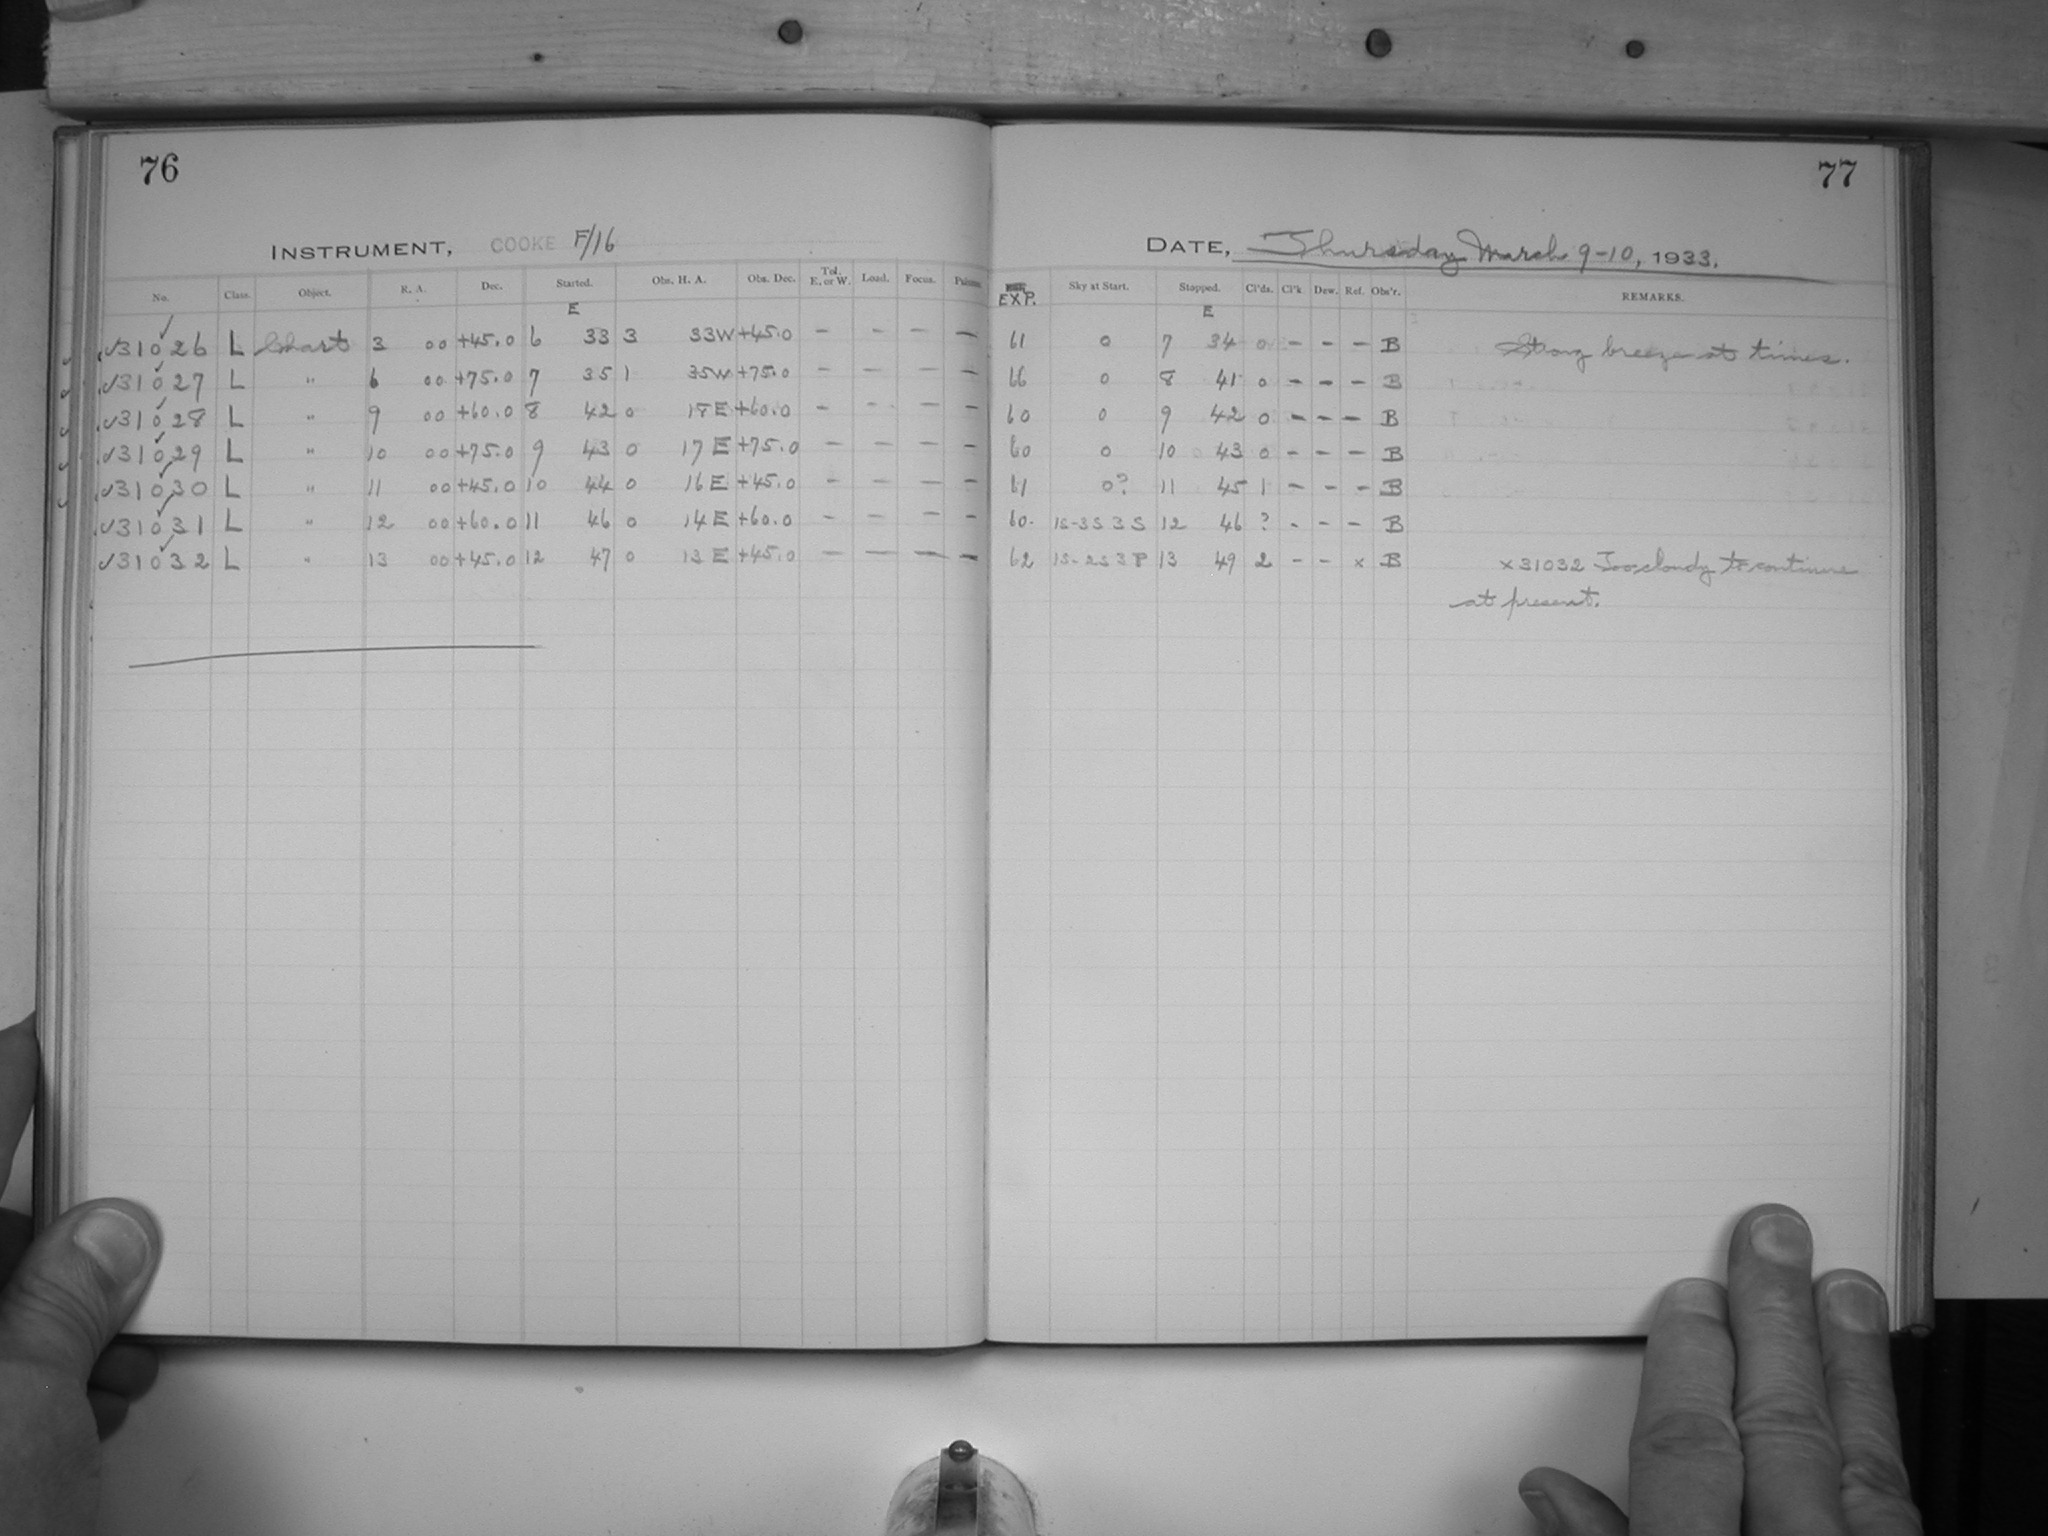 76
77
INSTRUMENT, COOKE F/16
DATE, Thursday March 9-10, 1933.
No. Class. Object. R. A. Dec. Started. Obs. H. A. Obs. Dec. Tel. E. or W. Load. Focus. EXP. Sky at Start. Stopped. Cl'ds. Cl'k Dew. Ref. Obs'r. REMARKS.
E E
√31026 L Chart 3 00 +45.0 6 33 3 33W +45.0 – – – – 61 0 7 34 0 – – – B Strong breeze at times.
√31027 L " 6 00 +75.0 7 35 1 35W +75.0 – – – – 66 0 8 41 0 – – – B
√31028 L " 9 00 +60.0 8 42 0 18E +60.0 – – – – 60 0 9 42 0 – – – B
√31029 L " 10 00 +75.0 9 43 0 17E +75.0 – – – – 60 0 10 43 0 – – – B
√31030 L " 11 00 +45.0 10 44 0 16E +45.0 – – – – 61 0? 11 45 1 – – – B
√31031 L " 12 00 +60.0 11 46 0 14E +60.0 – – – – 60. 1S-3S 3S 12 46 ? – – – B
√31032 L " 13 00 +45.0 12 47 0 13E +45.0 – – – – 62 1S-2S 3P 13 49 2 – – x B x31032 Too cloudy to continue
at present.